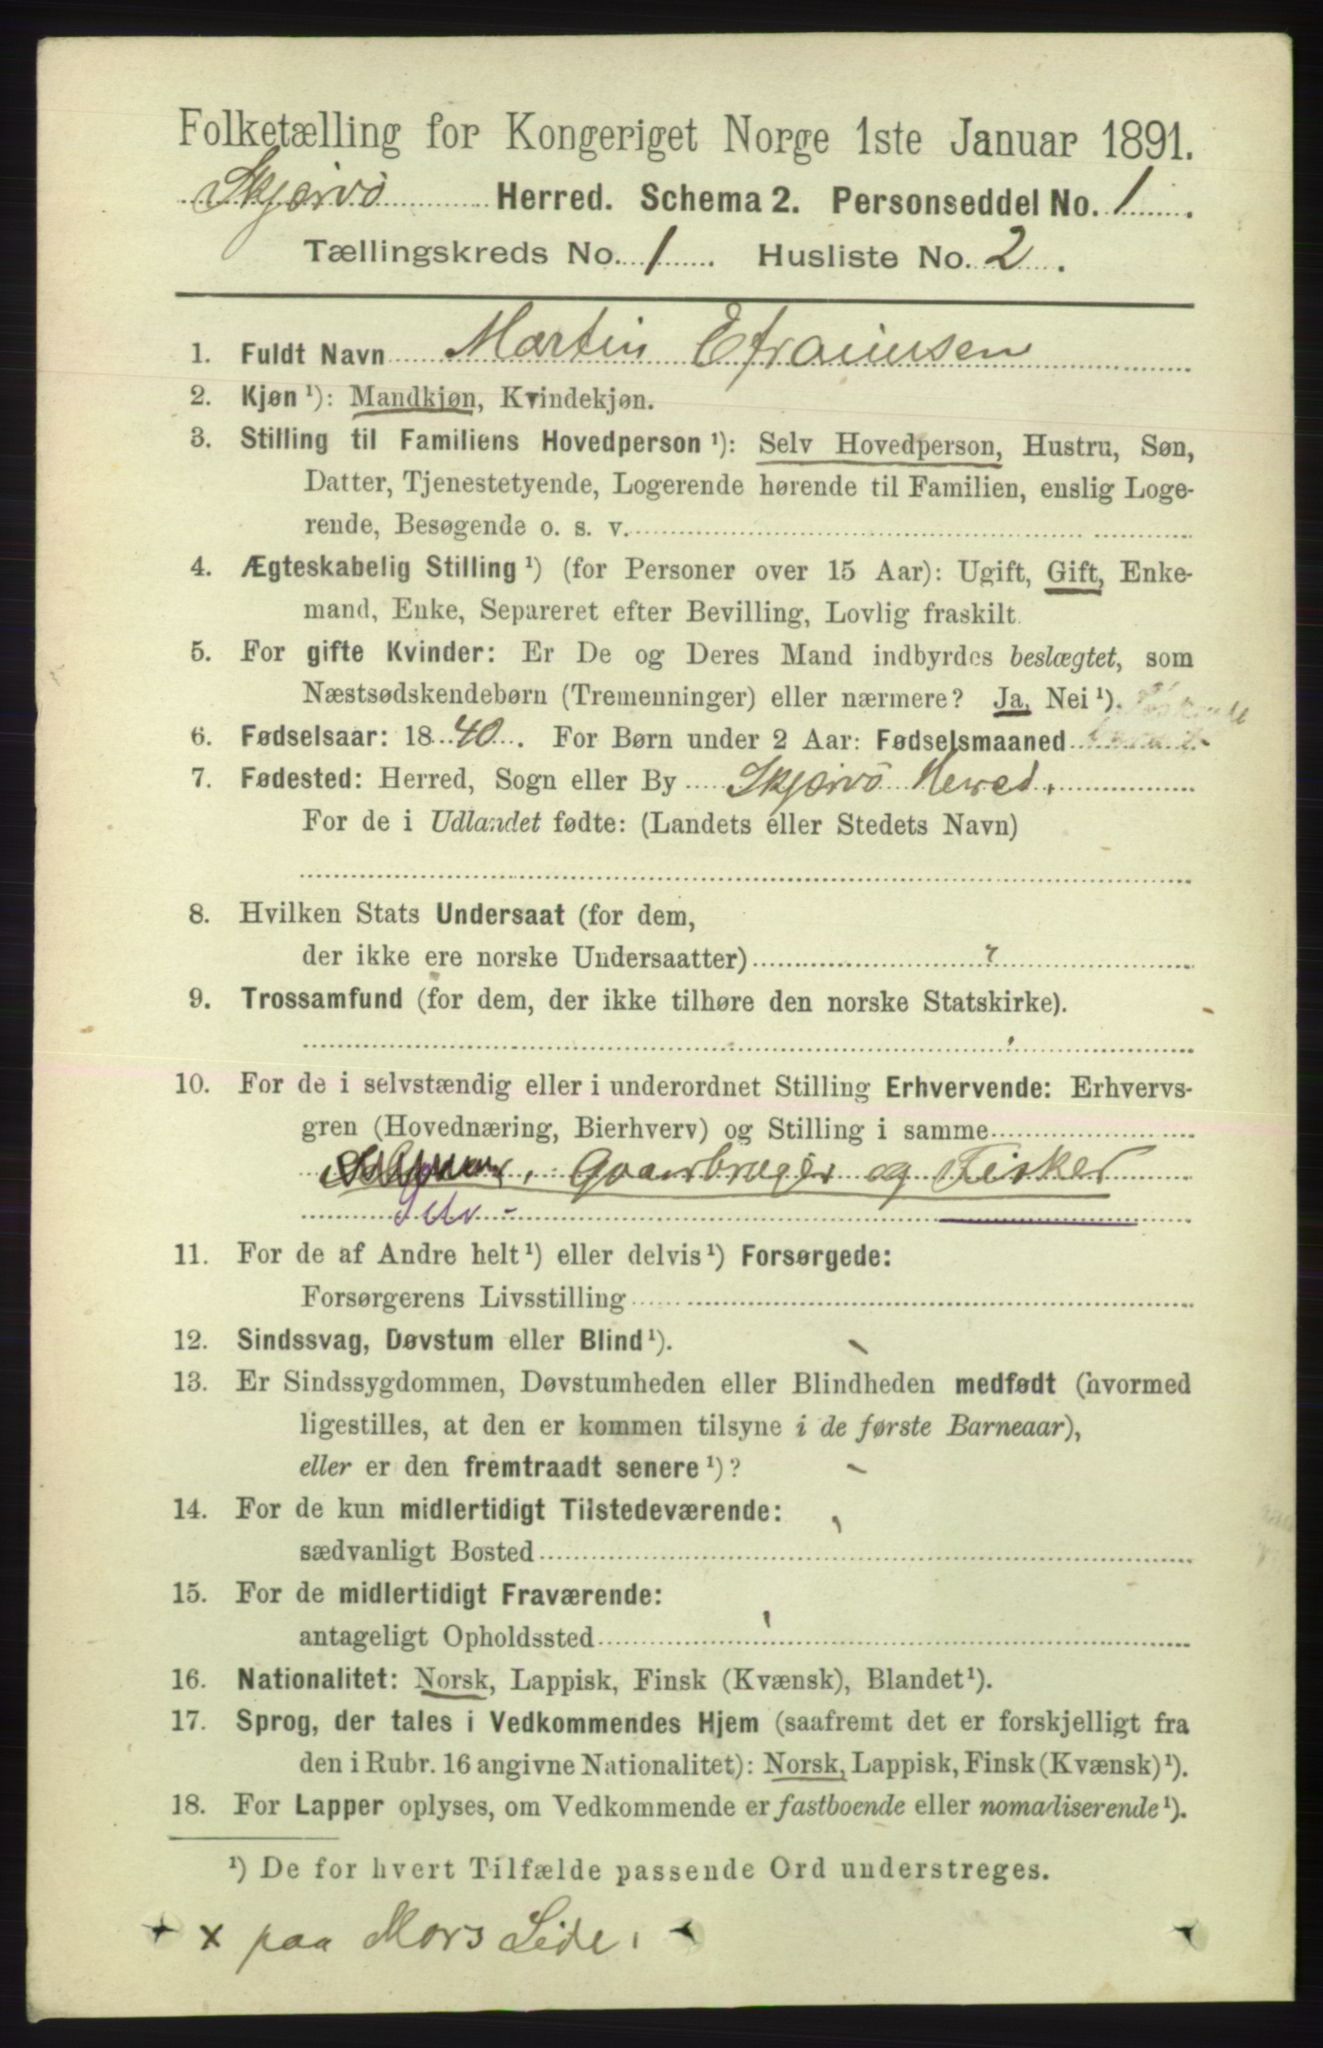 Folketælling for Kongeriget Norge 1ste Januar 1891.
Skjærvö Herred. Schema 2. Personseddel No. 1.
Tællingskreds No. 1. Husliste No. 2.
1. Fuldt Navn Martin Efraimsen
2. Kjøn ¹): Mandkjøn, Kvindekjøn.
3. Stilling til Familiens Hovedperson ¹): Selv Hovedperson, Hustru, Søn,
Datter, Tjenestetyende, Logerende hørende til Familien, enslig Loge-
rende, Besøgende o. s. v.
4. Ægteskabelig Stilling ¹) (for Personer over 15 Aar): Ugift, Gift, Enke-
mand, Enke, Separeret efter Bevilling, Lovlig fraskilt.
5. For gifte Kvinder: Er De og Deres Mand indbyrdes beslægtet, som
Næstsødskendebørn (Tremenninger) eller nærmere? Ja, Nei ¹).
6. Fødselsaar: 1840. For Børn under 2 Aar: Fødselsmaaned
7. Fødested: Herred, Sogn eller By Skjærvö Herred.
For de i Udlandet fødte: (Landets eller Stedets Navn)
8. Hvilken Stats Undersaat (for dem,
der ikke ere norske Undersaatter)
9. Trossamfund (for dem, der ikke tilhøre den norske Statskirke).
10. For de i selvstændig eller i underordnet Stilling Erhvervende: Erhvervs-
gren (Hovednæring, Bierhverv) og Stilling i samme
Gaardbruger og Fisker
Selv -
11. For de af Andre helt ¹) eller delvis ¹) Forsørgede:
Forsørgerens Livsstilling
12. Sindssvag, Døvstum eller Blind ¹).
13. Er Sindssygdommen, Døvstumheden eller Blindheden medfødt (hvormed
ligestilles, at den er kommen tilsyne i de første Barneaar),
eller er den fremtraadt senere ¹)?
14. For de kun midlertidigt Tilstedeværende:
sædvanligt Bosted
15. For de midlertidigt Fraværende:
antageligt Opholdssted
16. Nationalitet: Norsk, Lappisk, Finsk (Kvænsk), Blandet ¹).
17. Sprog, der tales i Vedkommendes Hjem (saafremt det er forskjelligt fra
den i Rubr. 16 angivne Nationalitet): Norsk, Lappisk, Finsk (Kvænsk) ¹).
18. For Lapper oplyses, om Vedkommende er fastboende eller nomadiserende ¹).
¹) De for hvert Tilfælde passende Ord understreges.
x paa Mors Side.